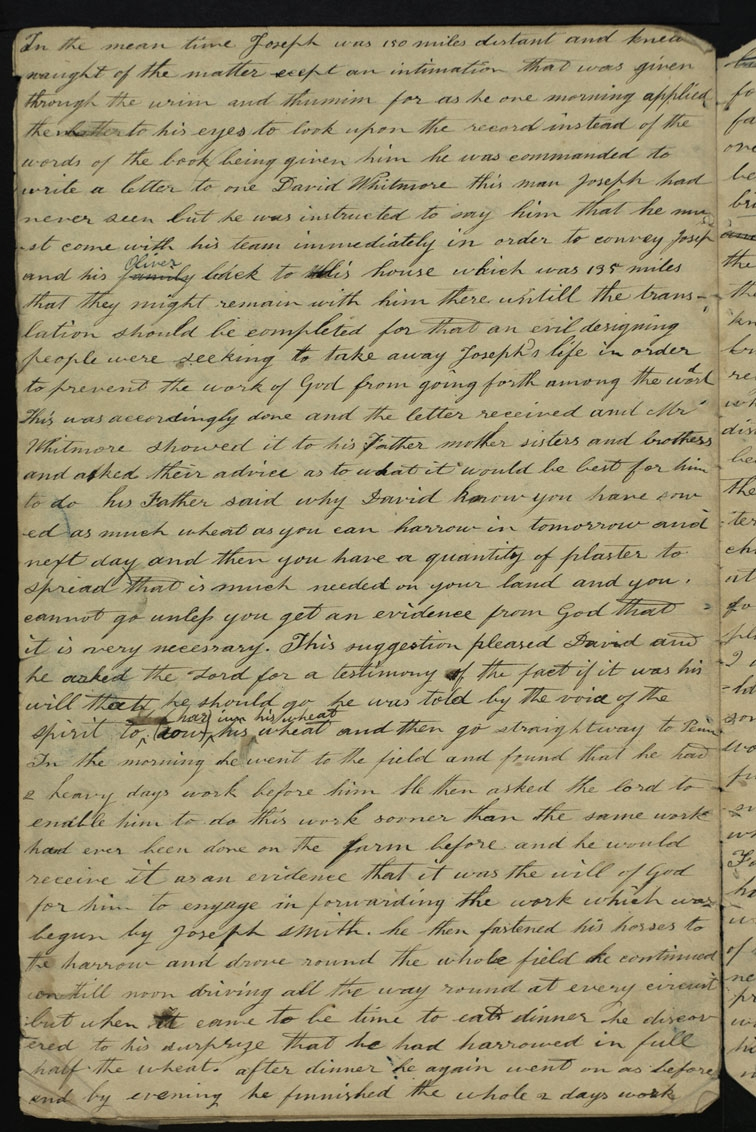 In the mean time Joseph was 150 miles distant and knew
naught of the matter ecept an intimation that was given
through the urim and thumim for as he one morning applied
the latter to his eyes to look upon the record instead of the
words of the book being given him he was commanded to
write a letter to one David Whitmore this man Joseph had
never seen but he was instructed to say him that he mu
st come with his team immediately in order to convey Joseph
Oliver
and his family back to his house which was 135 miles
that they might remain with him there untill the trans-
lation should be completed for that an evil designing
people were seeking to take away Joseph's life in order
to prevent the work of God from going forth among the world
This was accordingly done and the letter received and Mr
Whitmore showed it to his Father mother sisters and brothers
and asked their advice as to what it would be best for him
to do his Father said why David know you have sow
ed as much wheat as you can harrow in tomorrow and
next day and then you have a quantity of plaster to
spread that is much needed on your land and you
cannot go unless you get an evidence from God that
it is very necessary. This suggestion pleased David and
he asked the Lord for a testimony of the fact if it was his
will that he should go he was told by the voice of the
har in his wheat
spirit to sow his wheat and then go straightway to Penn
In the morning he went to the field and found that he had
2 heavy days work before him He then asked the lord to
enable him to do this work sooner than the same work
had ever been done on the farm before and he would
receive it as an evidence that it was the will of God
for him to engage in forwarding the work which was
begun by Joseph Smith. he then fastened his horses to
the harrow and drove round the whole field he continued
on till noon driving all the way round at every circuit
but when it came to be time to eat dinner he discov
ered to his surprize that he had harrowed in full
half the wheat. after dinner he again went on as before
and by evening he finnished the whole 2 days work